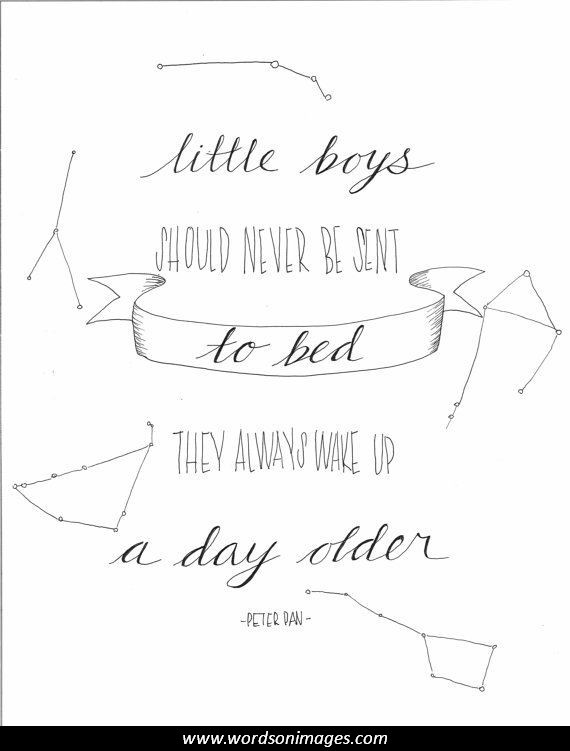 little boys
SHOULD NEVER BE SENT
to bed
THEY ALWAYS WAKE UP
a day older
-PETER PAN-
www.wordsonimages.com